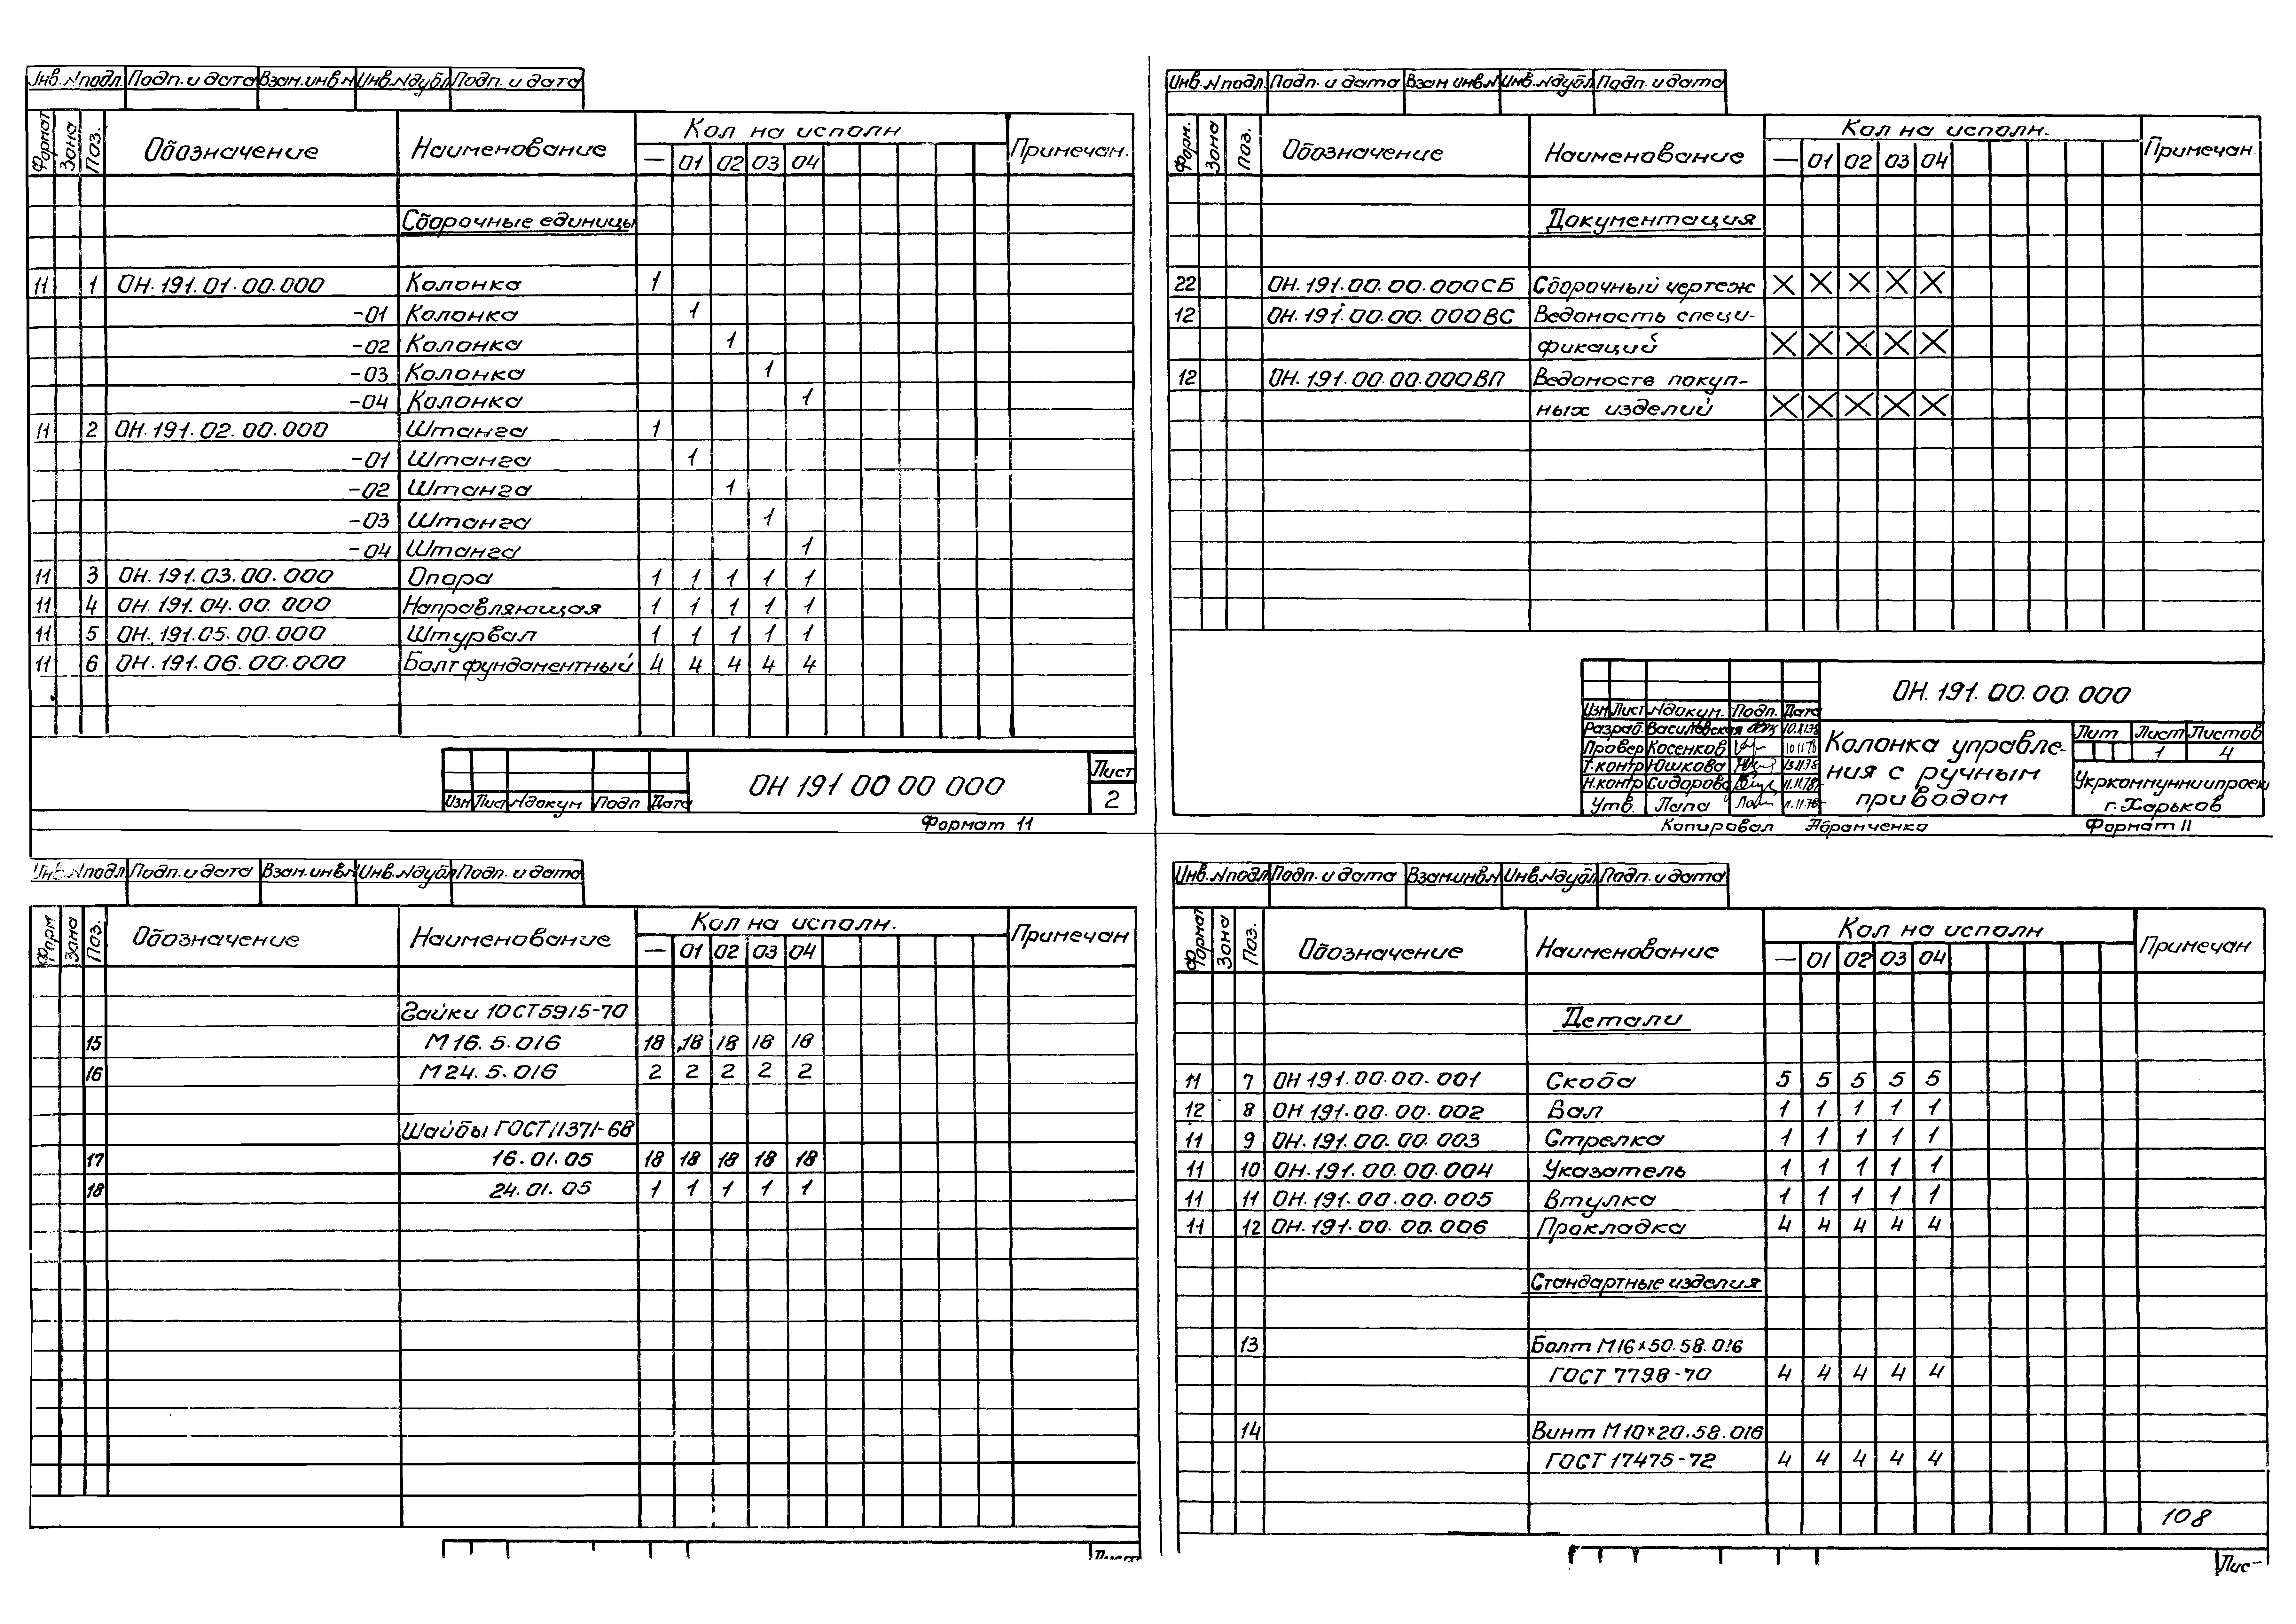 Инв.Nподл. Подп. и дата Взам.инв.N Инв.Nдубл Подп. и дата
Формат Зона Поз. Обозначение Наименование Кол на исполн Примечан.
— 01 02 03 04
Сборочные единицы
11 1 ОН.191.01.00.000 Колонка 1
-01 Колонка 1
-02 Колонка 1
-03 Колонка 1
-04 Колонка 1
11 2 ОН.191.02.00.000 Штанга 1
-01 Штанга 1
-02 Штанга 1
-03 Штанга 1
-04 Штанга 1
11 3 ОН.191.03.00.000 Опора 1 1 1 1 1
11 4 ОН.191.04.00.000 Направляющая 1 1 1 1 1
11 5 ОН.191.05.00.000 Штурвал 1 1 1 1 1
11 6 ОН.191.06.00.000 Болт фундаментный 4 4 4 4 4
Изм Лист Nдокум Подп Дата
ОН 191 00 00 000
Лист
2
Формат 11
Инв.Nподл Подп. и дата Взам инв.N Инв.Nдубл Подп. и дата
Форм. Зона Поз. Обозначение Наименование Кол на исполн. Примечан
— 01 02 03 04
Документация
22 ОН.191.00.00.000СБ Сборочный чертеж X X X X X
12 ОН.191.00.00.000ВС Ведомость специ-
фикаций X X X X X
12 ОН.191.00.00.000ВП Ведомость покуп-
ных изделий X X X X X
ОН.191.00.00.000
Изм Лист Nдокум. Подп. Дата
Разраб. Василевская
Провер Косенков
Т.контр Юшкова
Н.контр Сидорова
Утв. Папа
Колонка управле-
ния с ручным
приводом
Лит Лист Листов
1 4
Укркоммунниипроект
г.Харьков
Копировал Абранченко Формат 11
Инв.Nподл Подп. и дата Взам.инв.N Инв.Nдубл Подп. и дата
Форм Зона Поз. Обозначение Наименование Кол на исполн. Примечан
— 01 02 03 04
Гайки ГОСТ5915-70
15 М16.5.016 18 18 18 18 18
16 М24.5.016 2 2 2 2 2
Шайбы ГОСТ11371-68
17 16.01.05 18 18 18 18 18
18 24.01.05 1 1 1 1 1
Лист
Инв.Nподл Подп. и дата Взам.инв.N Инв.Nдубл Подп. и дата
Формат Зона Поз. Обозначение Наименование Кол на исполн Примечан
— 01 02 03 04
Детали
11 7 ОН 191.00.00.001 Скоба 5 5 5 5 5
12 8 ОН 191.00.00.002 Вал 1 1 1 1 1
11 9 ОН.191.00.00.003 Стрелка 1 1 1 1 1
11 10 ОН.191.00.00.004 Указатель 1 1 1 1 1
11 11 ОН.191.00.00.005 Втулка 1 1 1 1 1
11 12 ОН.191.00.00.006 Прокладка 4 4 4 4 4
Стандартные изделия
13 Болт М16×50.58.016
ГОСТ 7798-70 4 4 4 4 4
14 Винт М10×20.58.016
ГОСТ 17475-72 4 4 4 4 4
108
Лис